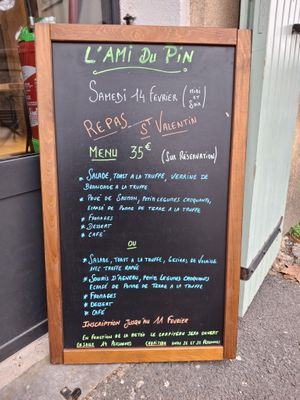 L'AMI DU PIN
SAMEDI 14 FÉVRIER (MIDI
ET
SOIR)
REPAS ST VALENTIN
MENU 35€ (SUR RÉSERVATION)
* SALADE, TOAST A LA TRUFFE, VERRINE DE
BRANDADE A LA TRUFFE
* PAVÉ DE SAUMON, PETITS LEGUMES CROQUANTS,
ECRASÉ DE POMME DE TERRE A LA TRUFFE
* FROMAGES
* DESSERT
* CAFÉ
OU
* SALADE, TOAST A LA TRUFFE, GESIERS DE VOLAILLE
AVEC TRUFFE RAPÉE
* SOURIS D'AGNEAU, PETITS LEGUMES CROQUANTS
ECRASÉ DE POMME DE TERRE A LA TRUFFE
* FROMAGES
* DESSERT
* CAFÉ
INSCRIPTION JUSQU'AU 11 FÉVRIER
EN FONCTION DE LA MÉTÉO LE CHAPITEAU SERA OUVERT
EN SALLE 14 PERSONNES CHAPITEAU ENTRE 26 ET 30 PERSONNES